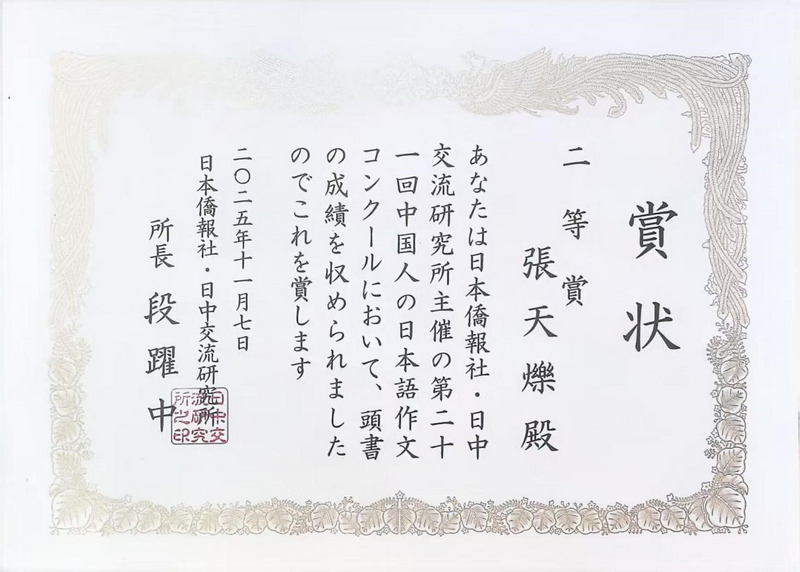 賞状
二等賞
張天爍殿
あなたは日本僑報社・日中
交流研究所主催の第二十
一回中国人の日本語作文
コンクールにおいて、頭書
の成績を収められました
のでこれを賞します
二〇二五年十一月七日
日本僑報社・日中交流研究所
所長 段躍中
日中交
流研究
所之印